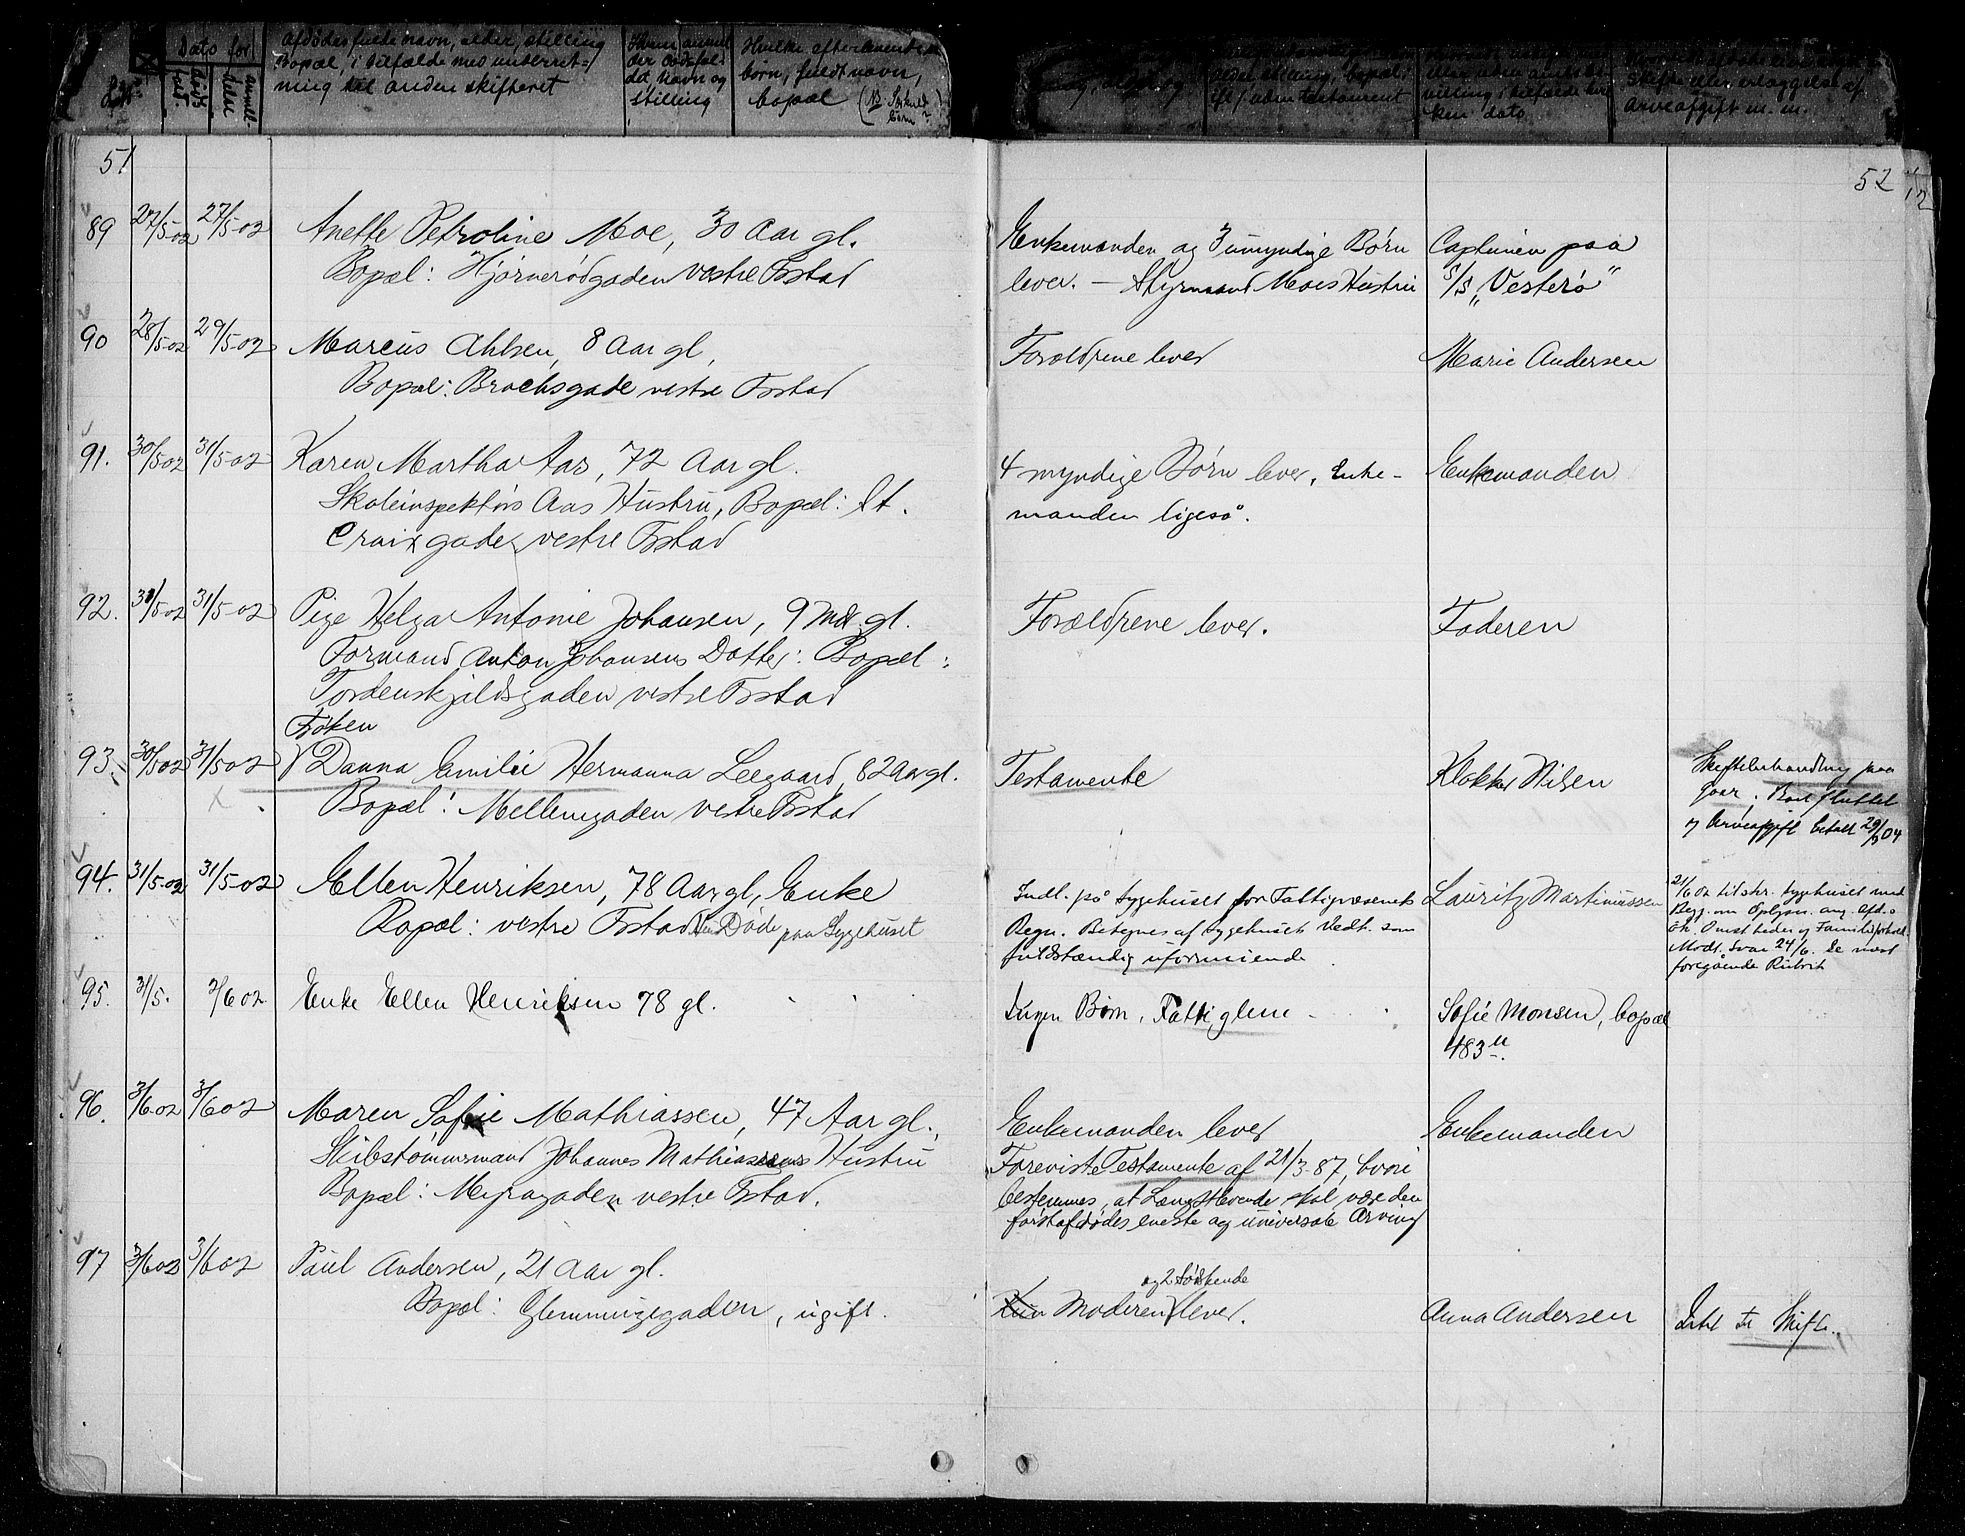 Dato for
afdødes fulde navn, alder, stilling
Bopæl, i tilfælde med underret-
ning til anden skifteret
Hvem anmel
der dødsfal-
det, Navn og
stilling
Hvilke efterlevende
børn, fuldt navn,
bopæl (NB. Særkuld
børn?)
alder, stilling, bopæl
ift / uden testament
ken dato
skifte eller erlæggelse af
arveafgift m. m.
51
52
89 27/5-02 27/5-02 Anette Petroline Moe, 30 Aar gl.
Bopæl: Hjørnerødgaden vestre Fstad
Enkemanden og 3 umyndige Børn
lever. — Styrmand Moes Hustru
Captainen paa
S/S „Vesterø"
90 28/5-02 29/5-02 Marcus Ahlsen, 8 Aar gl,
Bopæl: Brochsgade vestre Fstad
Forældrene lever
Marie Andersen
91. 30/5 02 31/5-02 Karen Martha Aas, 72 Aar gl.
Skoleinspektørs Aas Hustru, Bopæl: St.
Croixgade, vestre Fstad
4 myndige Børn lever, Enke-
manden ligeså.
Enkemanden
92. 31/5-02 31/5-02 Pige Helga Antonie Johansen, 9 Mdr. gl.
Formand Anton Johansens Datter: Bopæl:
Tordenskjoldsgaden vestre Fstad
Forældrene lever.
Faderen
Frøken
93. 30/5 02 31/5 02 Danna Emilie Hermanna Leegaard, 82 Aar gl.
Bopæl: Mellemgaden vestre Fstad
Testamente
Klokker Nilsen
Skiftebehandling paa
gaar. Boet sluttet
og Arveafgift betalt 29/3 04
94. 31/5-02 31/5-02 Ellen Henriksen, 78 Aar gl, Enke
Bopæl: vestre Fstad Døde paa Sygehuset
Indl. på sygehuset for Fattigvæsenets
Regn. Betegnes af sygehusets Vedk. som
fuldstændig uformuende
Lauritz Martinussen
21/6 02 tilskr. sygehuset med
Begj. om Oplysn. ang. Afd.s
øk. Omstheder og Familieforhold.
Modt. Svar 24/6. Se næst
foregående Rubrik
95. 31/5. 2/6 02. Enke Ellen Henriksen 78 gl.
Ingen Børn. Fattiglem
Sofie Monsen, bopæl
483 u
96. 3/6 02 3/6 02 Maren Sofie Mathiassen, 47 Aar gl.,
Skibstømmermand Johannes Mathiassens Hustru
Bopæl: Myragaden vestre Fstad.
Enkemanden lever
Foreviste Testamente af 21/3-87, hvori
bestemmes, at Længstlevende skal være den
førstafdødes eneste og universale Arving
Enkemanden
97 3/6 02 3/6 02 Paul Andersen, 21 Aar gl.
Bopæl: Glemmingegaden, ugift.
og 2 Søskende
Kun Moderen lever.
Anna Andersen
Intet til Skifte.